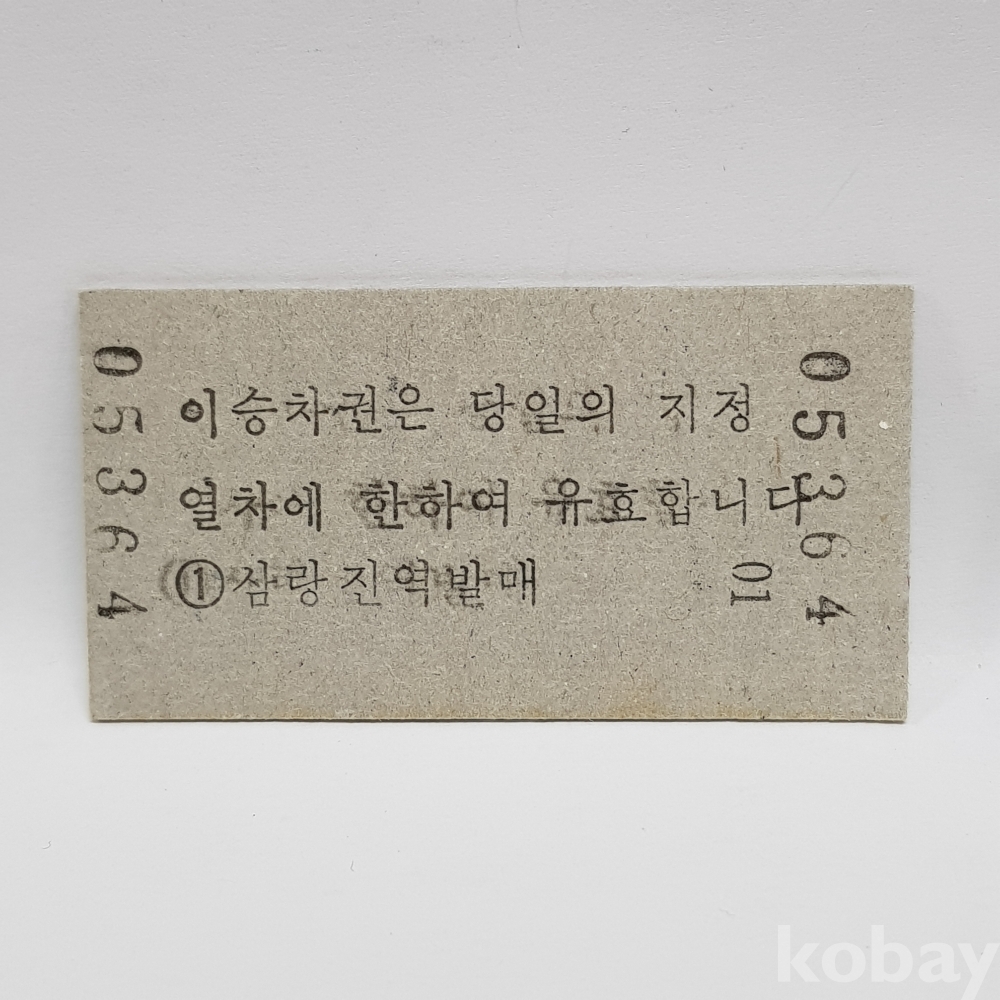 05364
이승차권은 당일의 지정
열차에 한하여 유효합니다
①삼랑진역발매
01
05364
kobay